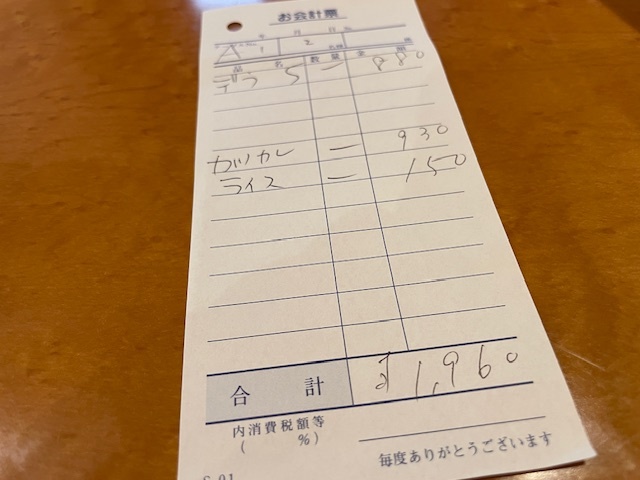 お会計票
年 月 日
1 2 名様
品 名 数量 金 額
デラ S 一 880
カツカレ 一 930
ライス 一 150
合 計 ¥1,960
内消費税額等
( %)
毎度ありがとうございます